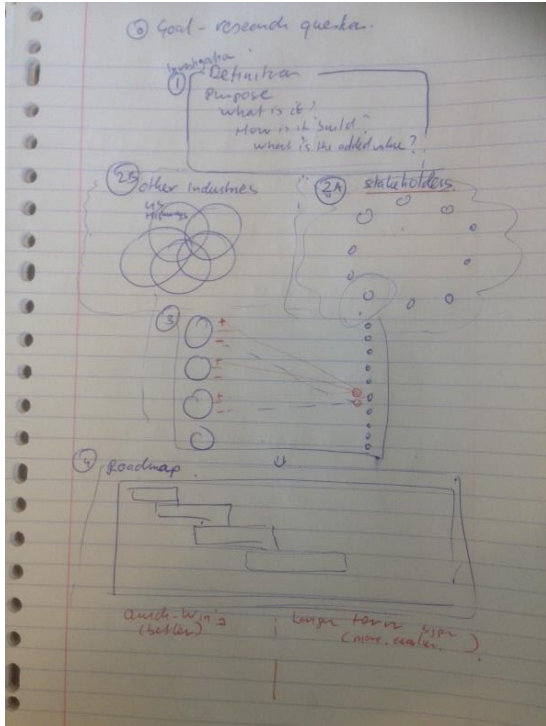 0 Goal - research question.
Investigation
1 Definition
Purpose
What is it?
How is it build?
What is the added value?
2B other Industries
2A stakeholders
US
Highways
3
+
-
+
-
+
-
4 Roadmap
Quick-Win's
(better)
Longer term
(more,